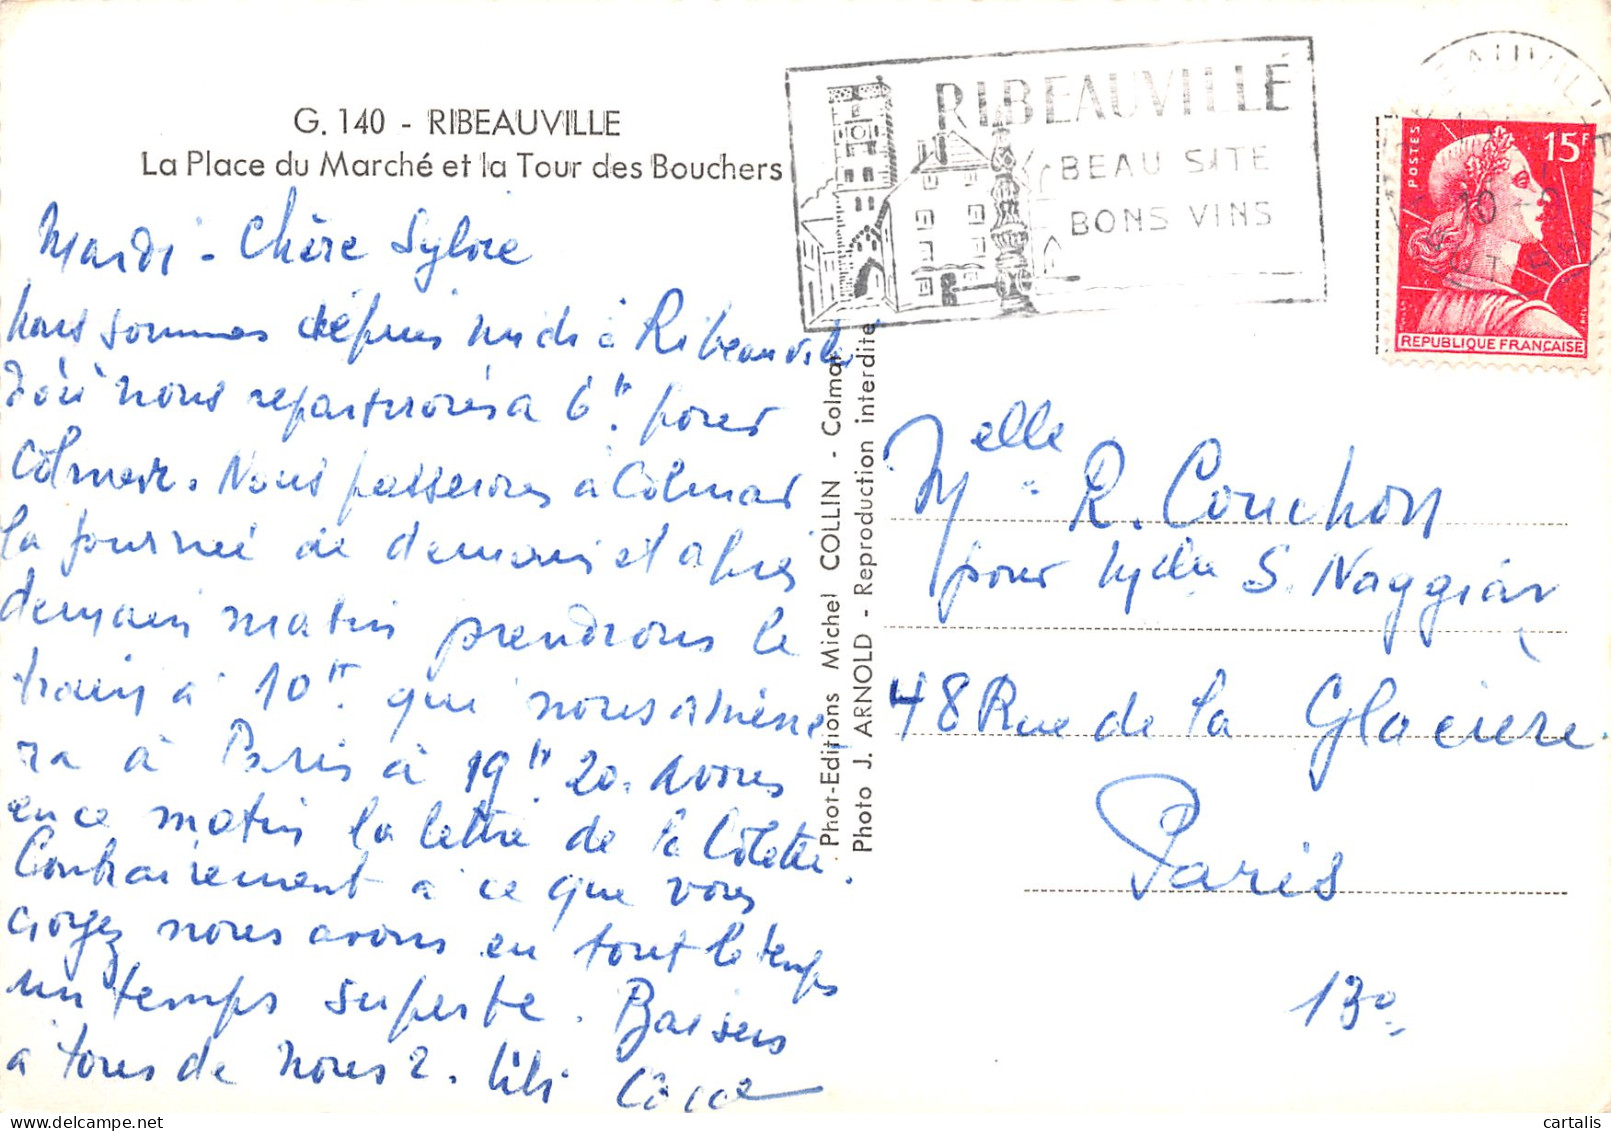 G. 140 - RIBEAUVILLE
La Place du Marché et la Tour des Bouchers
RIBEAUVILLÉ
BEAU SITE
BONS VINS
POSTES
15F
REPUBLIQUE FRANÇAISE
Mardi - Chère Sylvie
Nous sommes depuis midi à Ribeauvillé
d'où nous repartirons à 6h. pour
Colmar. Nous passerons à Colmar
la journée de demain et après
demain matin prendrons le
train à 10h. qui nous amène
ra à Paris à 19h 20. Avons
eu ce matin la lettre de la Colette.
Contrairement à ce que vous
croyez nous avons eu tout le temps
un temps superbe. Baisers
à tous de nous 2. Lili
Phot-Editions Michel COLLIN - Colmar
Photo J. ARNOLD - Reproduction interdite
Melle R. Couchon
pour S. Naggiar
48 Rue de la Glacière
Paris
13o
cartalis